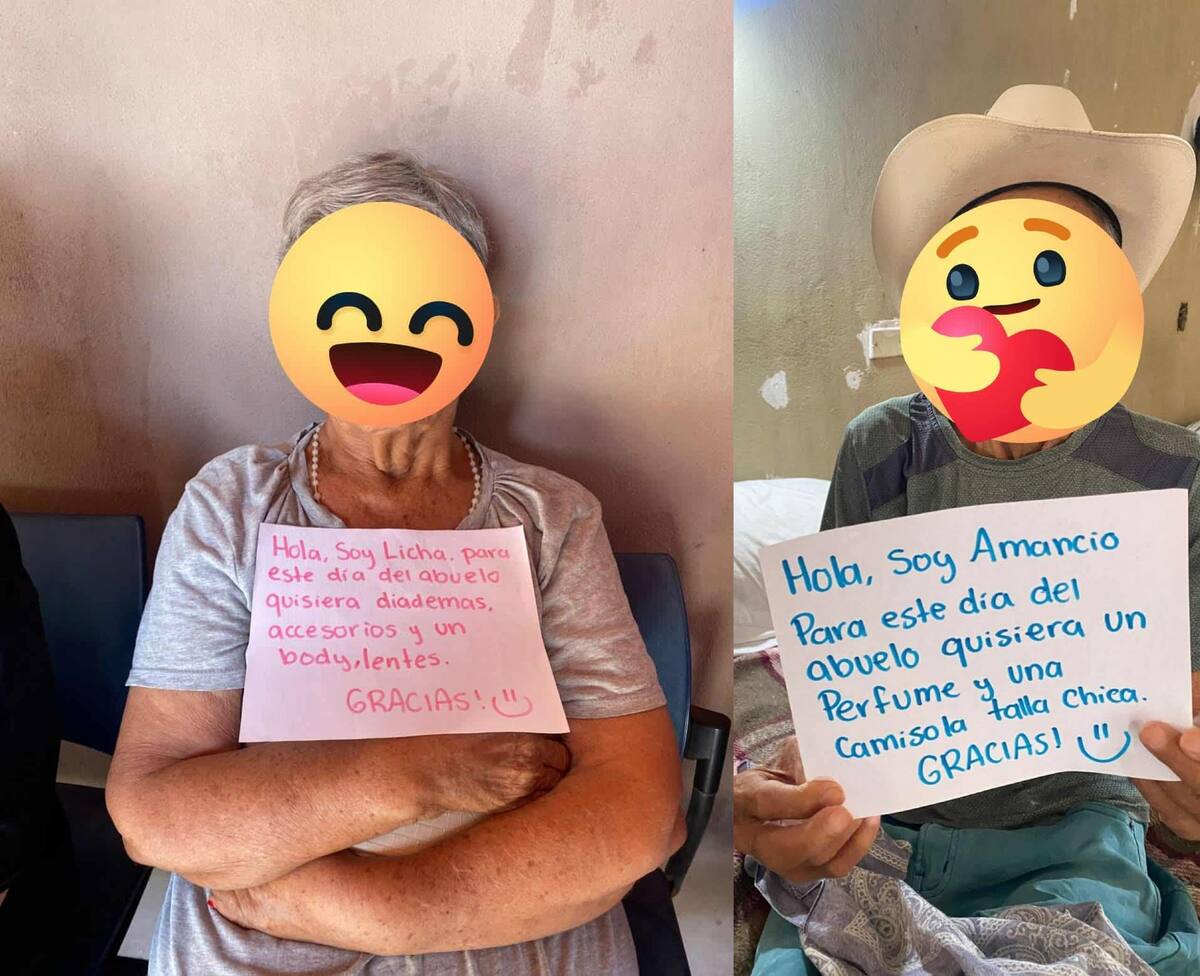 Hola, Soy Licha. para
este día del abuelo
quisiera diademas,
accesorios y un
body, lentes.
GRACIAS!
Hola, Soy Amancio
Para este día del
abuelo quisiera un
Perfume y una
Camisola talla Chica.
GRACIAS!